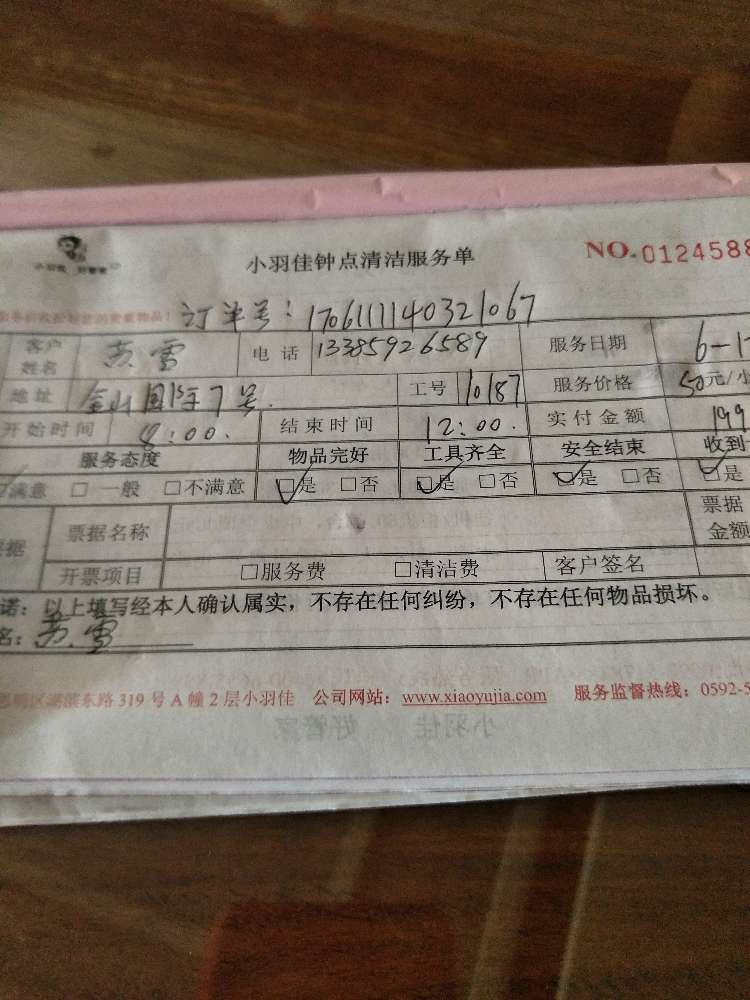 小羽佳 好管家
小羽佳钟点清洁服务单
NO.0124588
订单号：170611140321067
客户姓名 苏雪 电话 13385926589 服务日期 6-1
地址 7号. 工号 10187 服务价格 50元/小
开始时间 8:00. 结束时间 12:00. 实付金额 199
服务态度 物品完好 工具齐全 安全结束 收到
满意 □一般 □不满意 □是 □否 □是 □否 □是 □否 □是
票据名称 票据金额
开票项目 □服务费 □清洁费 客户签名
诺：以上填写经本人确认属实，不存在任何纠纷，不存在任何物品损坏。
名：苏雪
思明区湖滨东路319号A幢2层小羽佳 公司网站：www.xiaoyujia.com 服务监督热线：0592-5